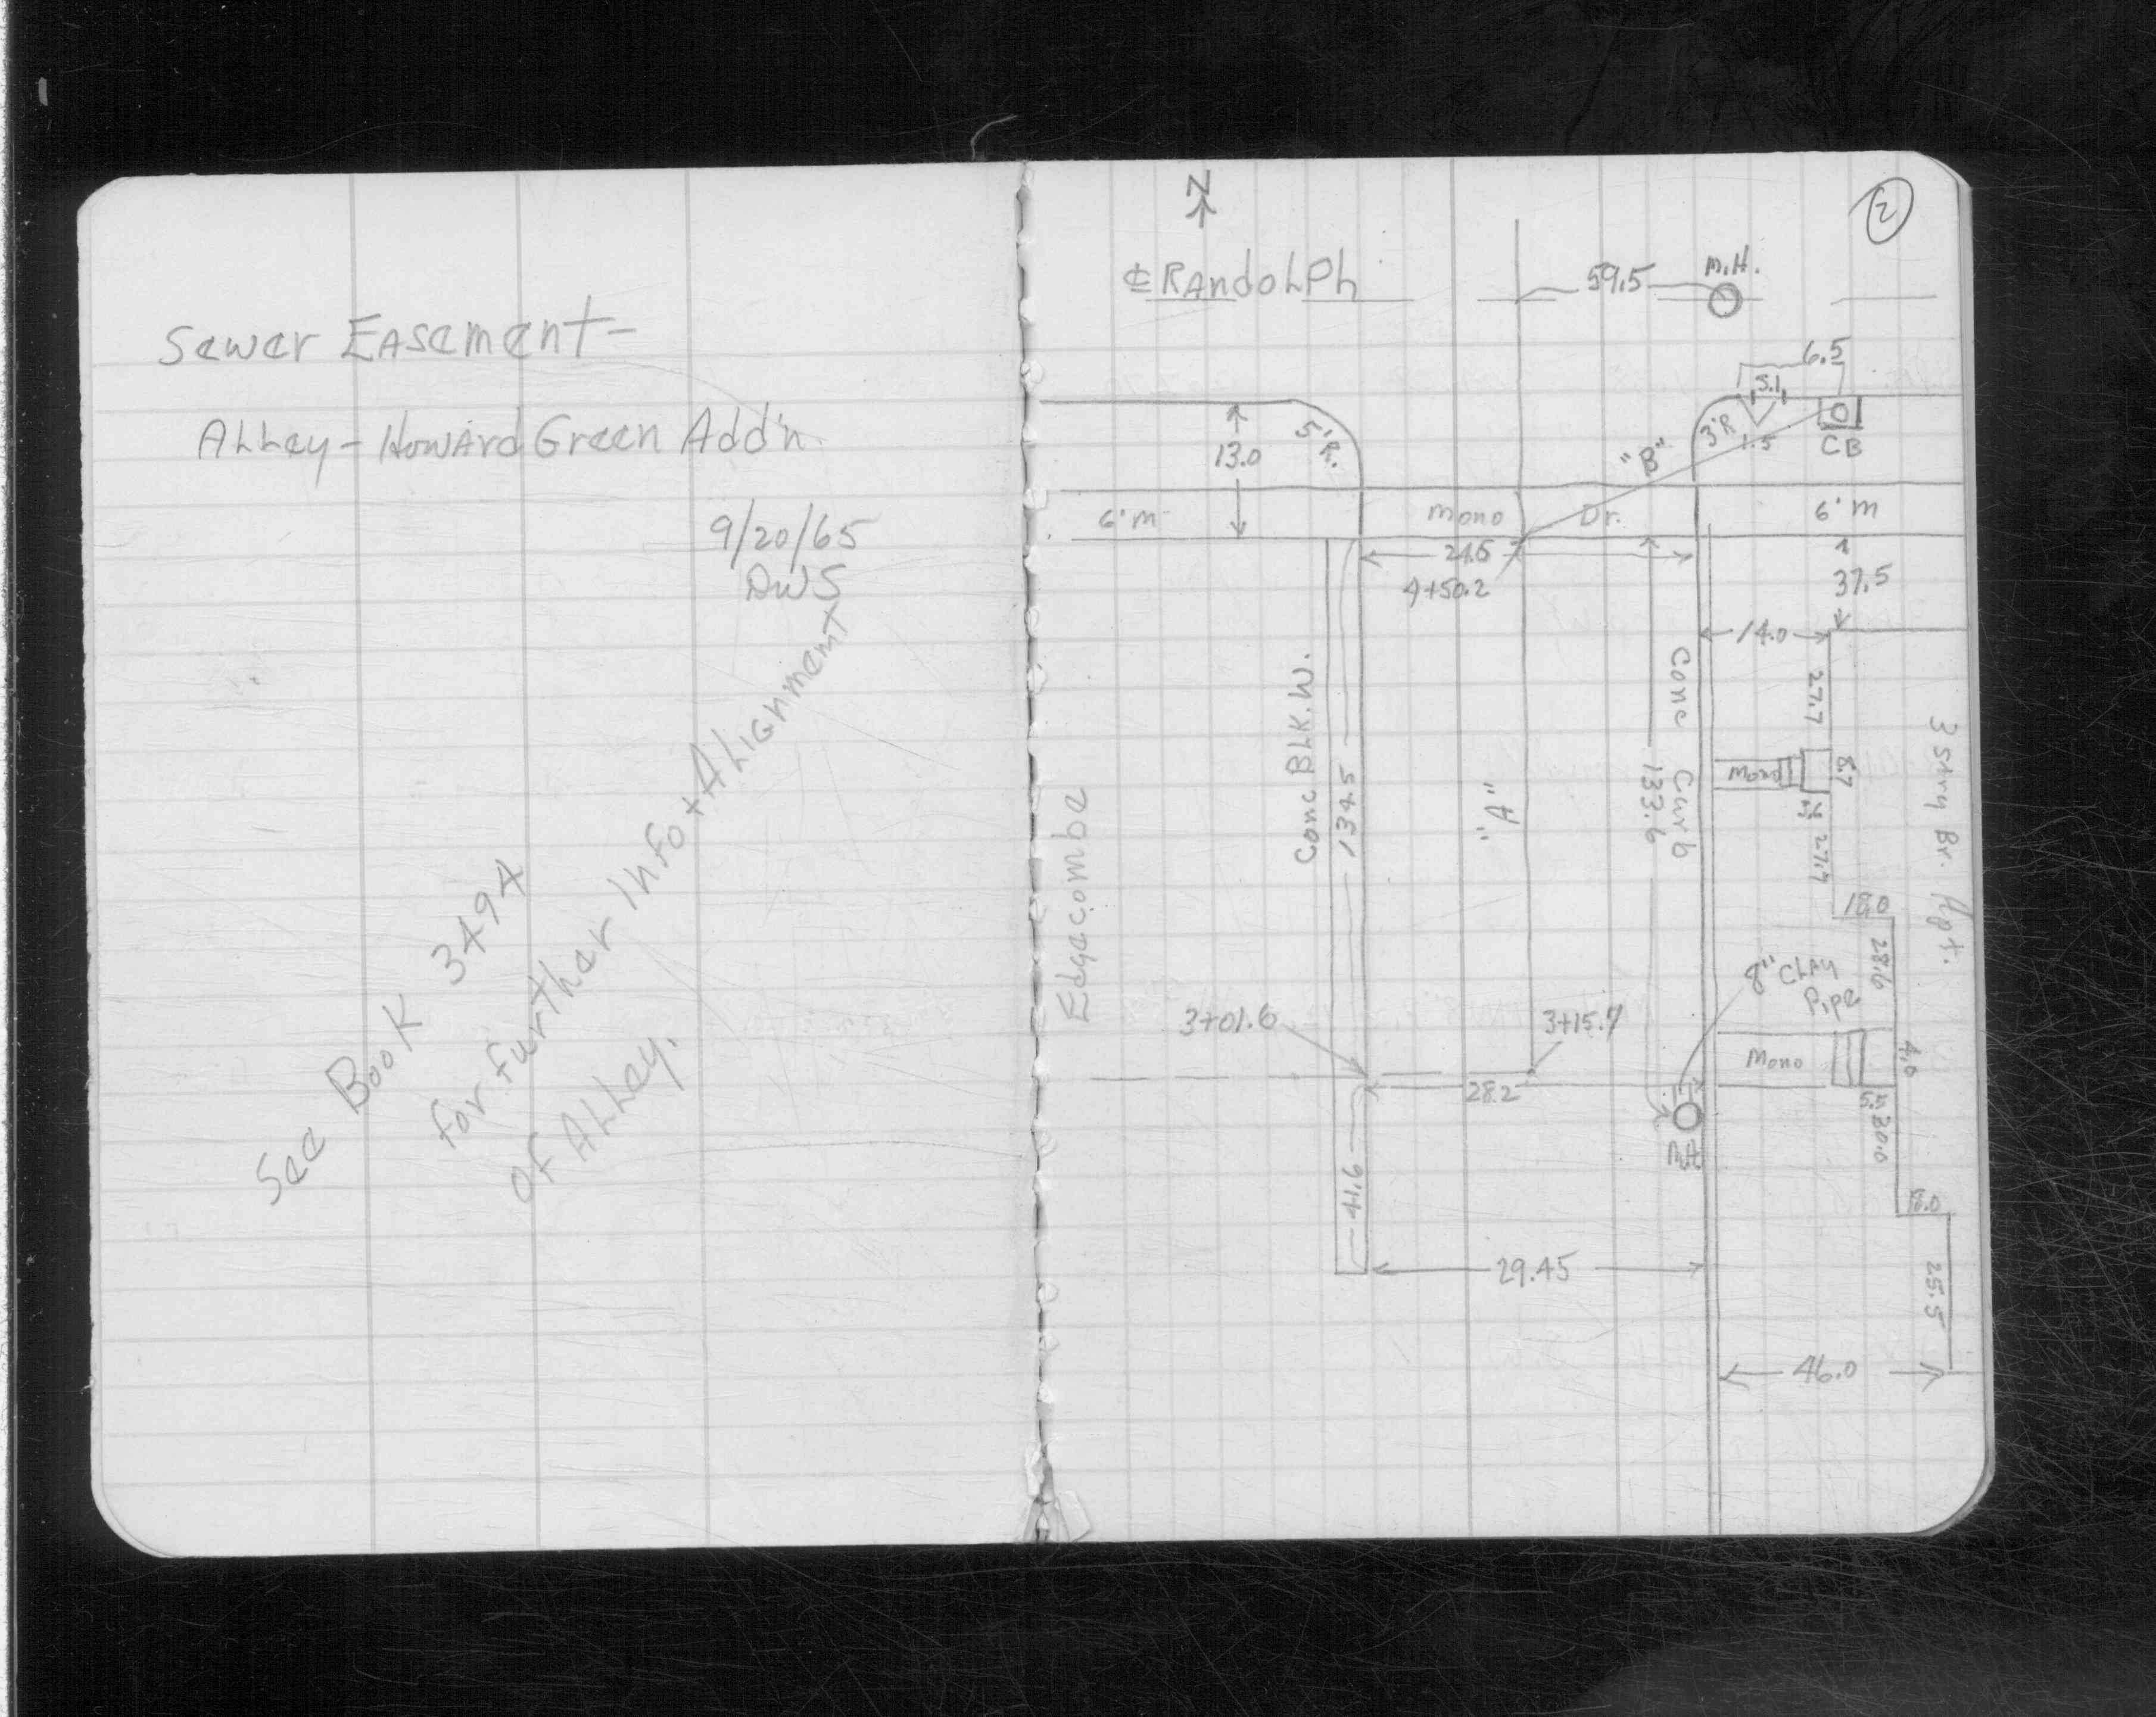 Sewer Easement-
Alley - Howard Green Add'n.
9/20/65
DWS
See Book 3494
For Further Info + Alignment
of Alley.
2
N
℄ Randolph
59.5
M.H.
6.5
5.1
5'R.
3'R
1.5
CB
13.0
"B"
6' m
Mono Dr.
6' m
4+50.2
37.5
14.0
Conc BLK. W.
134.5
"A"
133.6
Conc Curb
27.7
Mono
8.7
27.7
3 stry Br. Apt.
18.0
28.6
Edgecombe
8" Clay
Pipe
3+01.6
3+15.7
28.2
Mono
4.0
5.5
30.0
M.H.
41.6
18.0
29.45
25.5
46.0